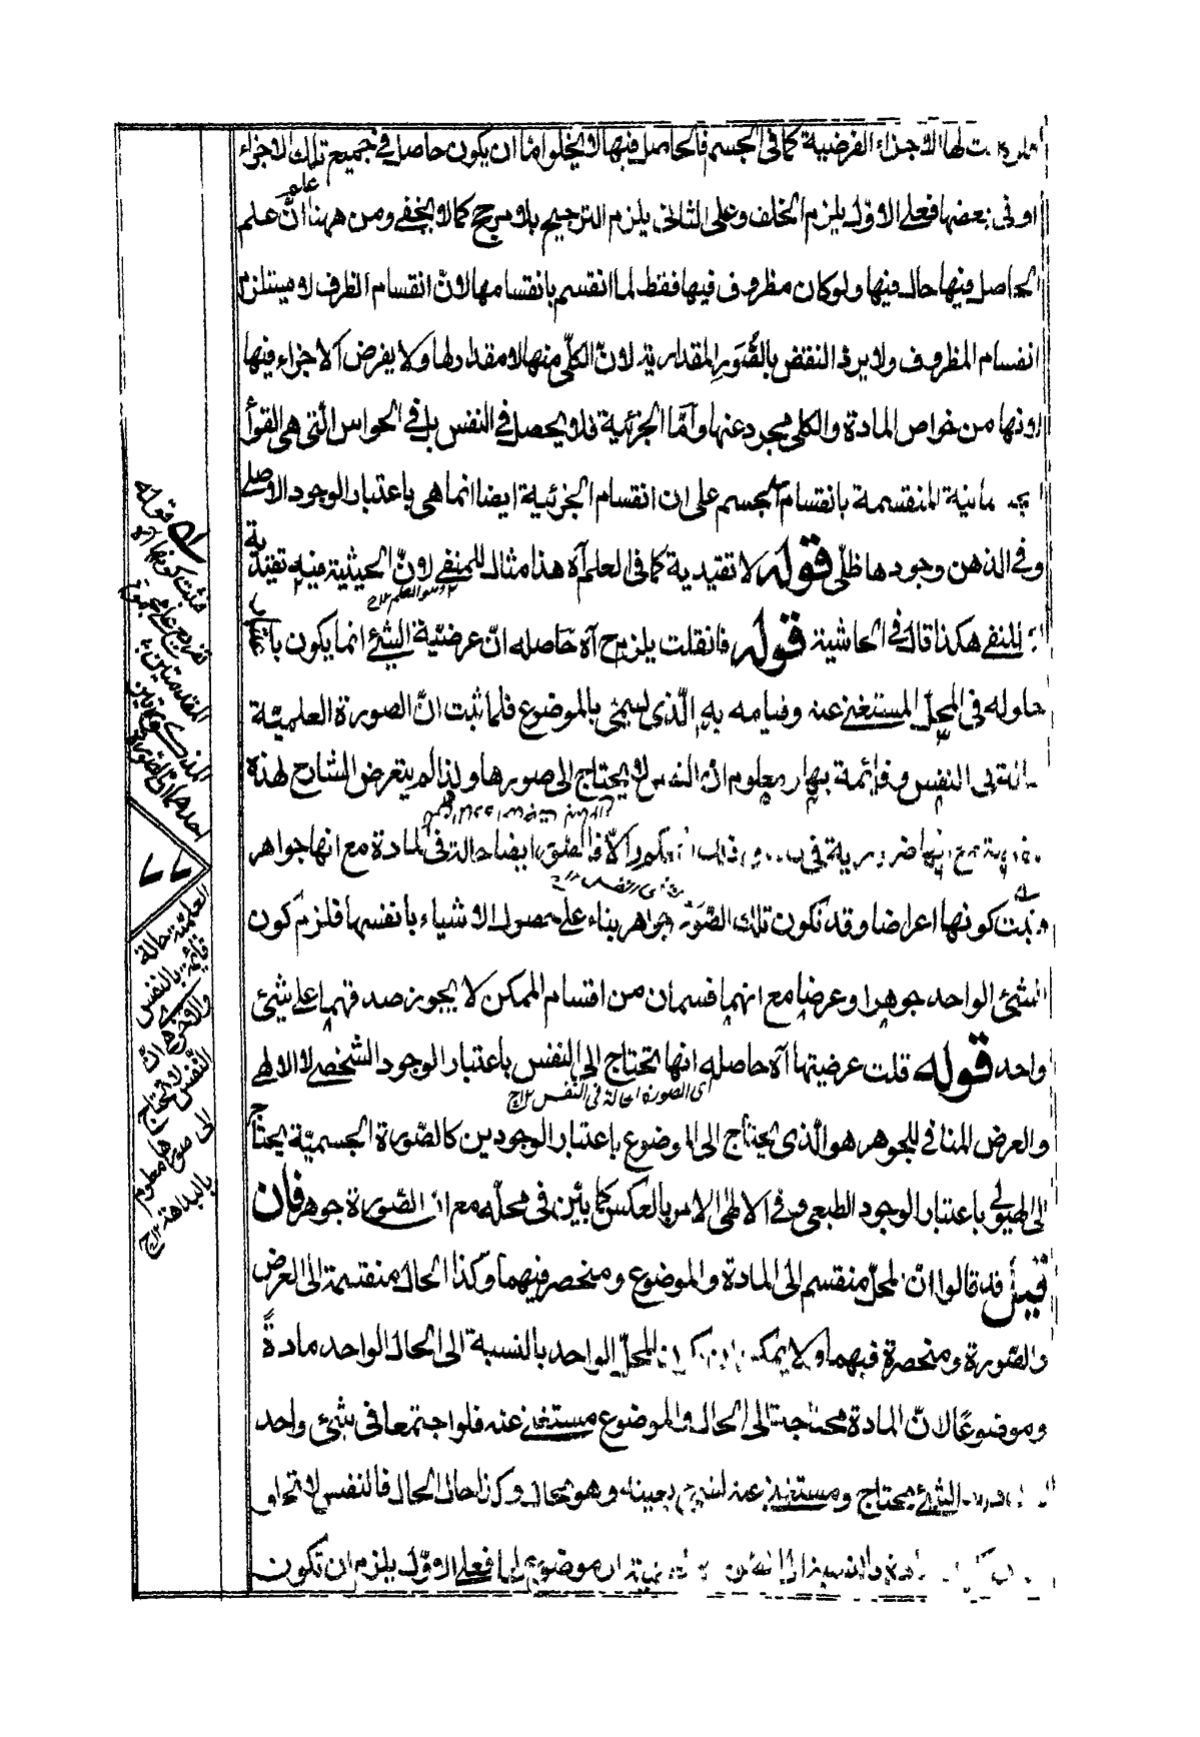 لها الاجزاء الفرضية كما فى الجسم فالحاصل فيها لا يخلو اما ان يكون حاصل فى جميع تلك الاجزاء
او فى بعضها فعلى الاول يلزم الخلف وعلى الثانى يلزم الترجيح بلا مرجح كما لا يخفى ومن ههنا انّ علم
علم
الحاصل فيها حال فيها ولو كان مظروف فيها فقط لما انقسم بانقسامها لانّ انقسام الظرف لا يستلزم
انقسام المظروف ولا يرد النقض بالصُّوَرِ المقدارية لانّ الكلّى منها لا مقدار لها ولا يفرض الاجزاء فيها
لانها من خواص المادة والكلى مجرد عنها وامّا الجزئية فلا يحصل فى النفس بل فى الحواس الّتى هى القوأ
الجسمانية المنقسمة بانقسام الجسم على ان انقسام الجزئية ايضا انما هى باعتبار الوجود الاصلى
وفى الذهن وجودها ظلّى قوله لا تقيدية كما فى العلم آه هذا مثال للمنفى لانّ الحيثية فيه تقيدية
للنفى هكذا قال فى الحاشية قوله فان قلت يلزم ح آه حاصله انّ عرضيّة الشئ انما يكون باعتبار
حلوله فى المحلّ المستغنى عنه وقيامه به الّذى يسمّى بالموضوع فلما ثبت انّ الصورة العلميّة
حالة فى النفس وقائمة بها ومعلوم انّ النفس لا يحتاج الى صورها ولذا لم يتعرض الشارح لهذه
ضرورية فى فالصور ايضا حالة فى المادة مع انها جواهر
فثبت كونها اعراضا وقد تكون تلك الصُّوَرُ جواهر بناء على حصول الاشياء بانفسها فلزم كون
الشئ الواحد جوهرا وعرضا مع انهما قسمان من اقسام الممكن لا يجوز صدقهما على شئ
واحد قوله قلت عرضيتها آه حاصله انها تحتاج الى النفس باعتبار الوجود الشخصى لا الالهى
اى الصورة الحالة فى النفس ١٢ ج
والعرض المنافى للجوهر هو الّذى يحتاج الى الموضوع باعتبار الوجودين كالصّورة الجسميّة يحتاج
الى الهيولى باعتبار الوجود الطبعى وفى الالهى الامر بالعكس كما بيّن فى محلّه مع انّ الصّورة جوهر فان
قيل قد قالوا انّ المحلّ منقسم الى المادة والموضوع ومنحصر فيهما وكذا الحال منقسمة الى العرض
والصّورة ومنحصرة فيهما ولا يمكن ان يكون المحلّ الواحد بالنسبة الى الحال الواحد مادةً
وموضوعًا لانّ المادة محتاجة الى الحال والموضوع مستغنى عنه فلو اجتمعا فى شئ واحد
الشئ يحتاج ومستغنى عنه لشئ بعينه وهو محال وكذا حال الحال فالنفس لا تخلو
موضوع لها فعلى الاوّل يلزم ان تكون
قوله
فثبت كونها آه
تفريع على
المقدمتين
المذكورتين
احدهما ان الصورة
٧٧
العلمية حالة
قائمة بالنفس
والاخرى انّ
النّفس لا تحتاج
الى صورها
معلوم
بالبداهة ١٢ ج